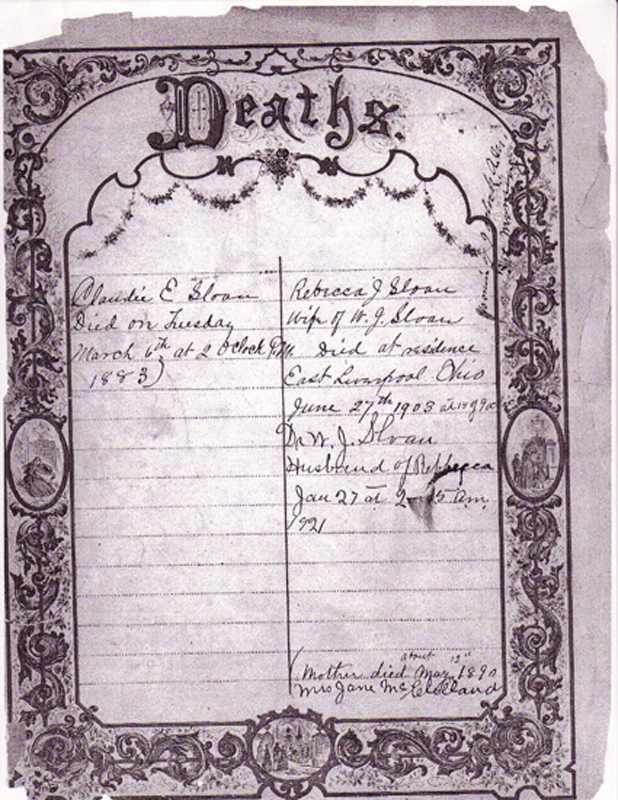 Deaths.
Claudie E Sloan
Died on Tuesday
March 6th at 2 O'clock P.M.
1883)
Rebecca J Sloan
Wife of W. J. Sloan
Died at residence
East Liverpool Ohio
June 27th 1903 at
Dr W. J. Sloan
Husband of Rebbecca
Jan 27 at 2 am.
1921
about 12"
(Mother died May 1890
Mrs Jane McClelland